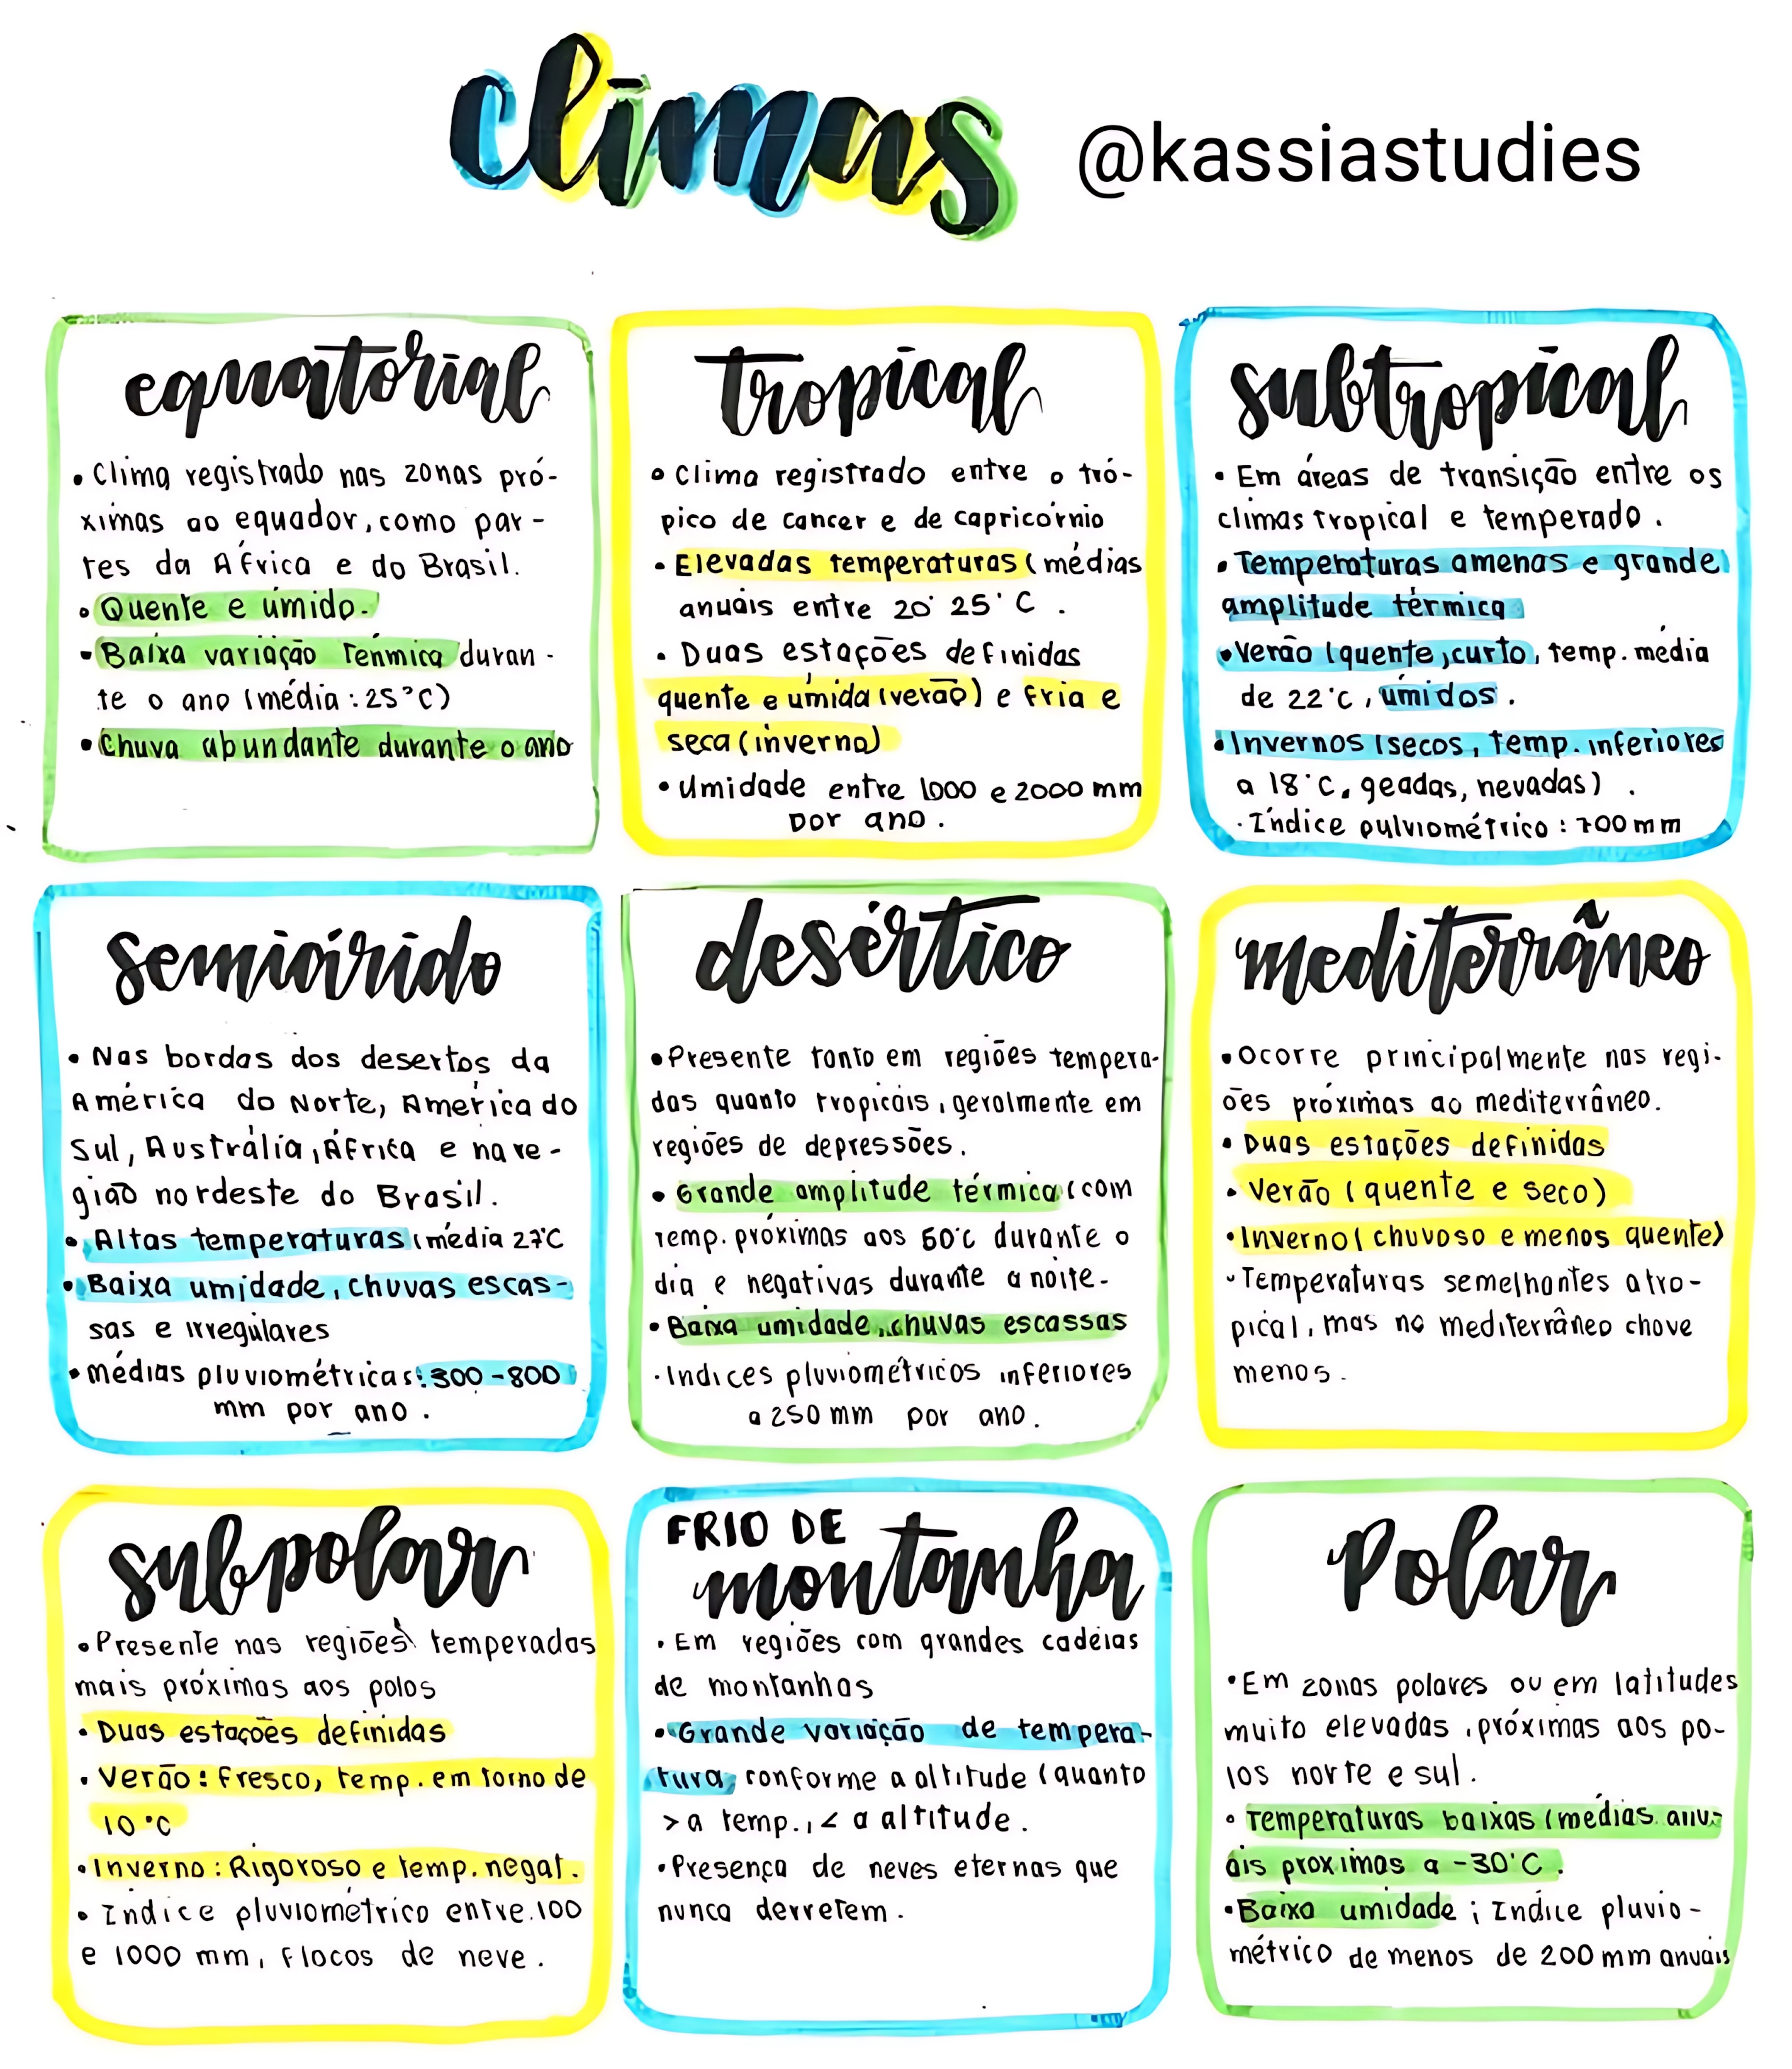 climas @kassiastudies
equatorial
• Clima registrado nas zonas pró-
ximas ao equador, como par-
tes da África e do Brasil.
• Quente e úmido.
• Baixa variação térmica duran-
te o ano (média: 25°C)
• Chuva abundante durante o ano
tropical
• Clima registrado entre o tró-
pico de cancer e de capricórnio
• Elevadas temperaturas (médias
anuais entre 20° 25°C.
• Duas estações definidas
quente e úmida (verão) e fria e
seca (inverno)
• Umidade entre 1000 e 2000 mm
por ano.
subtropical
• Em áreas de transição entre os
climas tropical e temperado.
• Temperaturas amenas e grande
amplitude térmica
• Verão (quente, curto, temp. média
de 22°C, úmidos.
• Invernos (secos, temp. inferiores
a 18°C, geadas, nevadas).
• Índice pulviométrico: 700 mm
semiárido
• Nas bordas dos desertos da
América do Norte, América do
Sul, Austrália, África e na re-
gião nordeste do Brasil.
• Altas temperaturas (média 27°C
• Baixa umidade, chuvas escas-
sas e irregulares
• médias pluviométricas: 300-800
mm por ano.
desértico
• Presente tanto em regiões tempera-
das quanto tropicais, geralmente em
regiões de depressões.
• Grande amplitude térmica (com
temp. próximas aos 50°C durante o
dia e negativas durante a noite-
• Baixa umidade, chuvas escassas
• Indices pluviométricos inferiores
a 250 mm por ano.
mediterrâneo
• Ocorre principalmente nas regi-
ões próximas ao mediterrâneo.
• Duas estações definidas
• Verão (quente e seco)
• Inverno (chuvoso e menos quente)
• Temperaturas semelhantes a tro-
pical, mas no mediterrâneo chove
menos.
subpolar
• Presente nas regiões temperadas
mais próximas aos polos
• Duas estações definidas
• Verão: Fresco, temp. em torno de
10°C
• Inverno: Rigoroso e temp. negat.
• Indice pluviométrico entre 100
e 1000 mm, flocos de neve.
FRIO DE
montanha
• Em regiões com grandes cadeias
de montanhas
• Grande variação de tempera-
tura, conforme a altitude (quanto
> a temp., < a altitude.
• Presença de neves eternas que
nunca derretem.
Polar
• Em zonas polares ou em latitudes
muito elevadas, próximas aos po-
los norte e sul.
• Temperaturas baixas (médias anu-
ais proximas a -30°C.
• Baixa umidade; Indice pluvio-
métrico de menos de 200 mm anuais